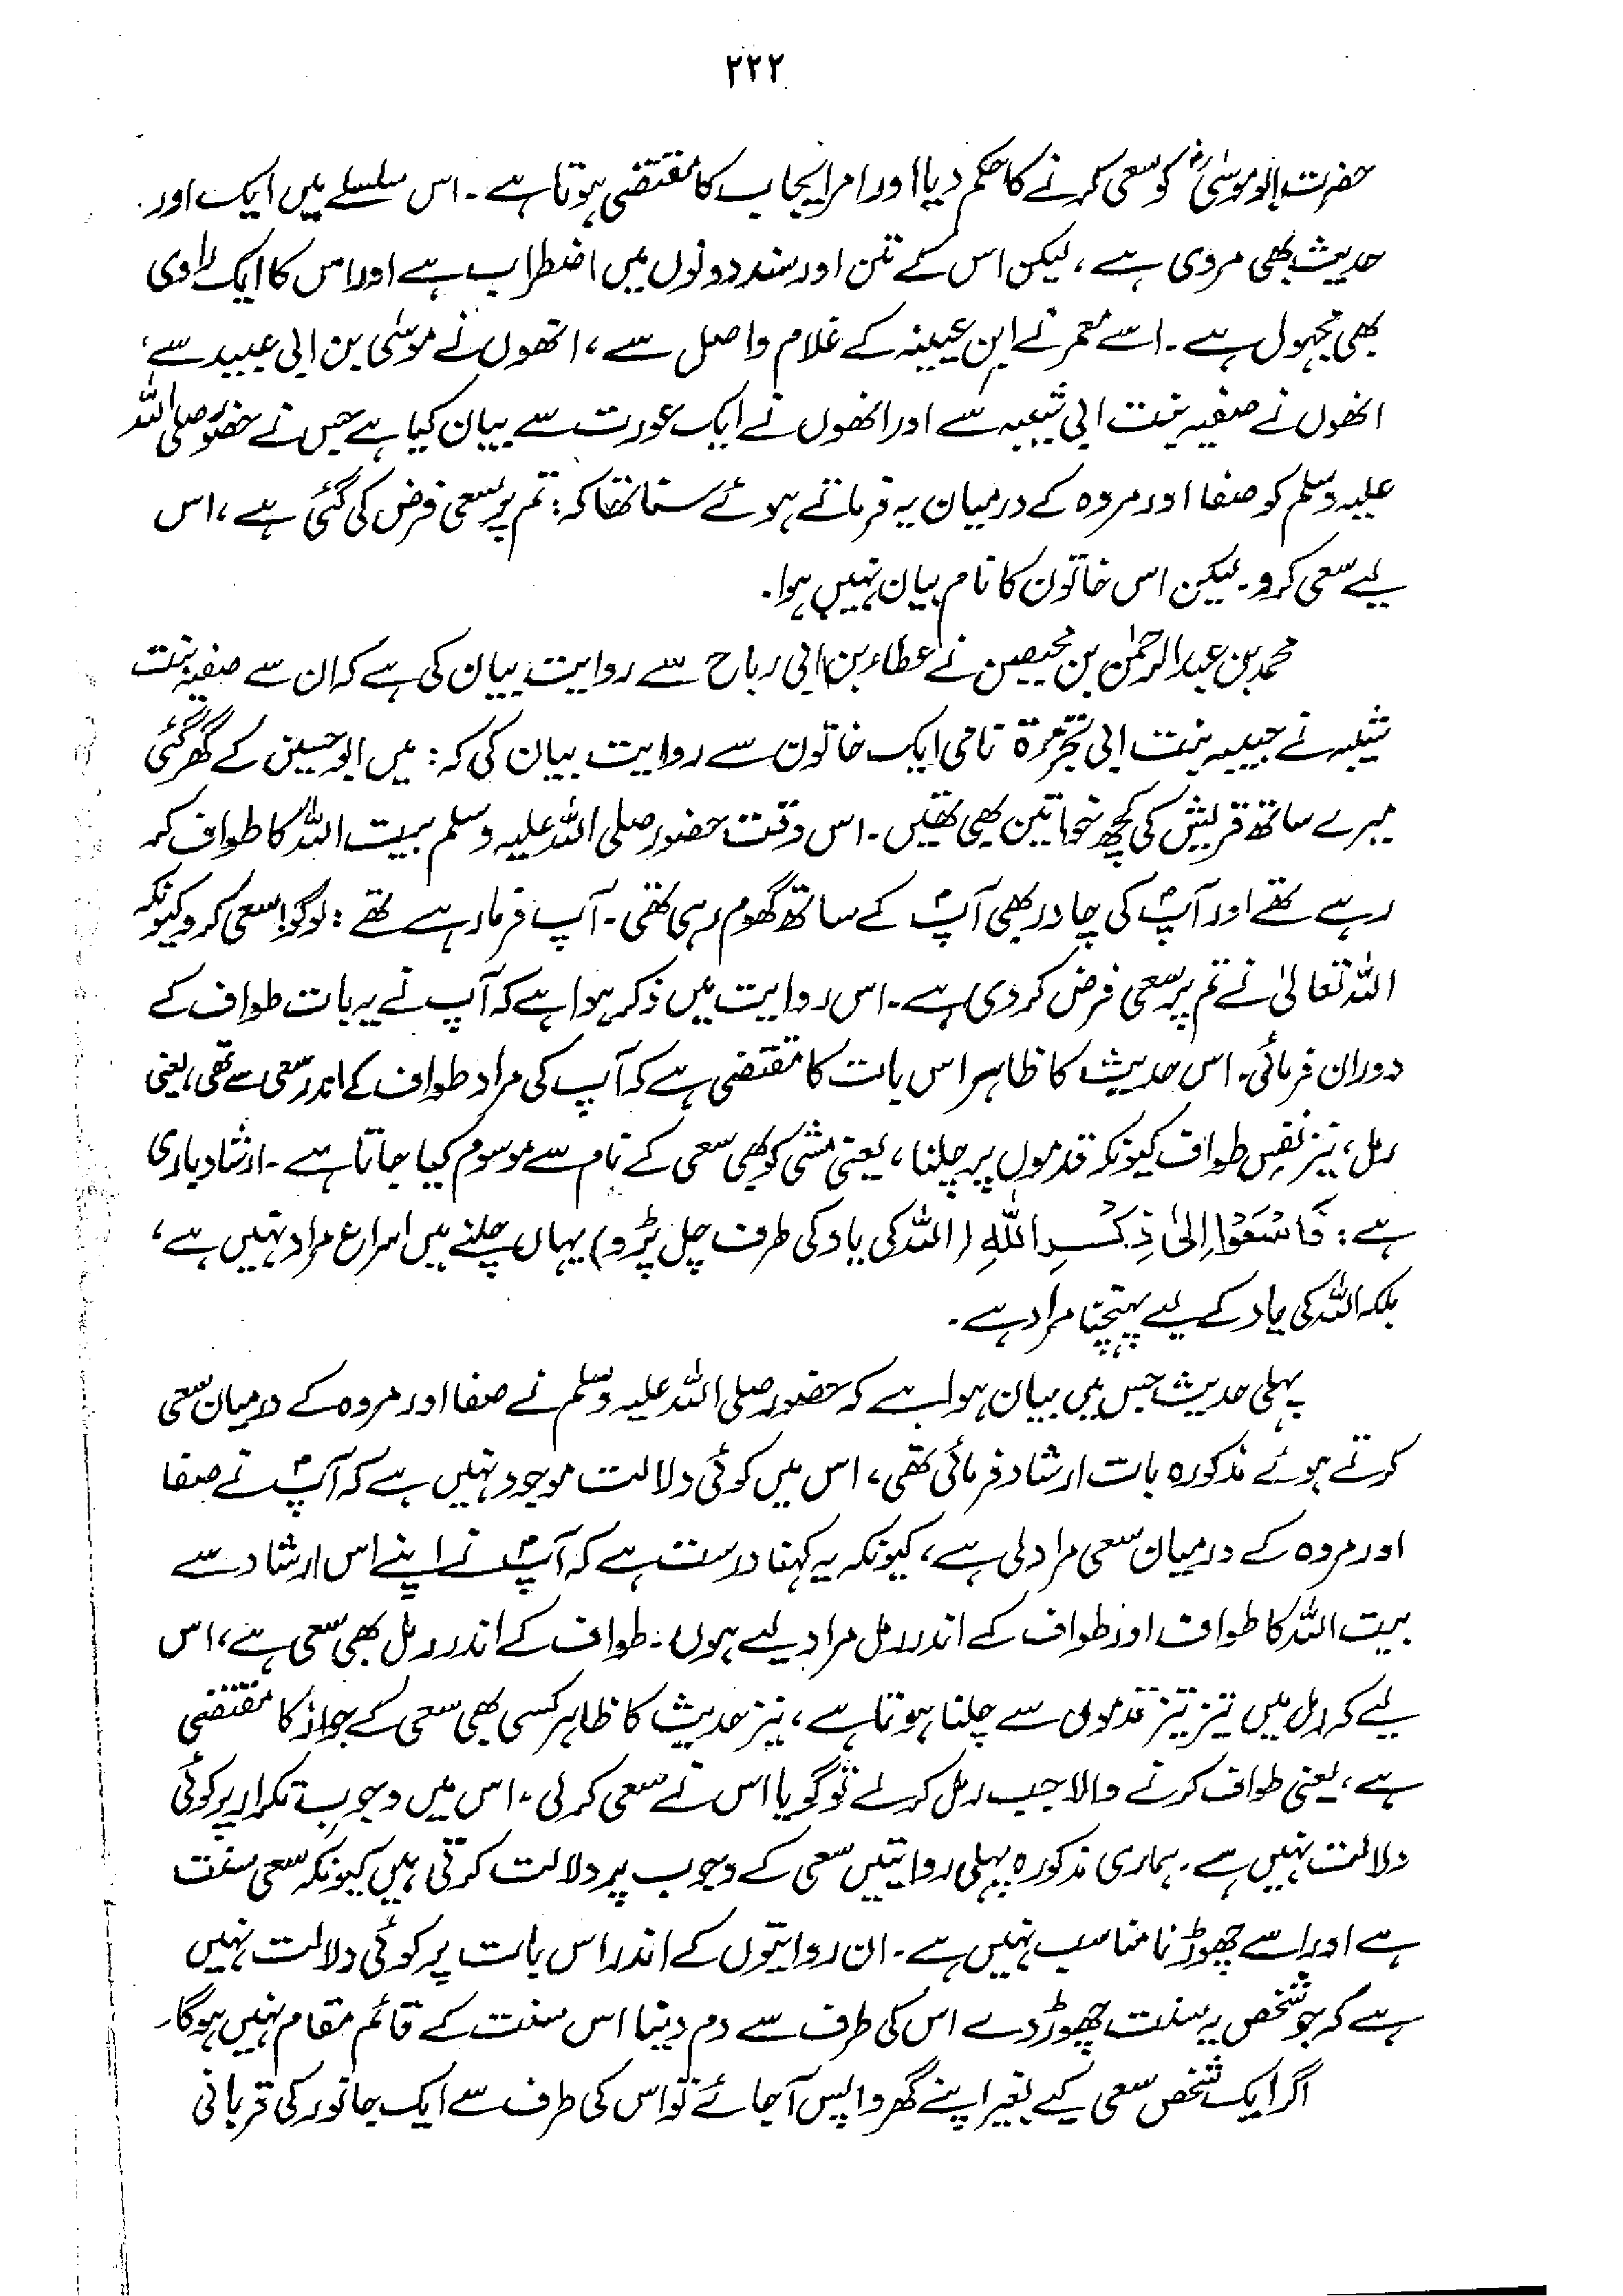 ۲۲۲
حضرت ابو موسیٰؓ کو سعی کرنے کا حکم دیا اور امر ایجاب کا مقتضی ہوتا ہے۔ اس سلسلے میں ایک اور
حدیث بھی مروی ہے، لیکن اس کے متن اور سند دونوں میں اضطراب ہے اور اس کا ایک راوی
بھی مجہول ہے۔ اسے معمر نے ابن عیینہ کے غلام واصل سے، انھوں نے موسٰی بن ابی عبید سے،
انھوں نے صفیہ بنت ابی شیبہ سے اور انھوں نے ایک عورت سے بیان کیا ہے جس نے حضور صلی اللہ
علیہ وسلم کو صفا اور مروہ کے درمیان یہ فرماتے ہوئے سنا تھا کہ: تم پر سعی فرض کی گئی ہے، اس
لیے سعی کرو۔ لیکن اس خاتون کا نام بیان نہیں ہوا۔
محمد بن عبدالرحمٰن بن محیصن نے عطاء بن ابی رباح سے روایت بیان کی ہے کہ ان سے صفیہ بنت
شیبہ نے حبیبہ بنت ابی تجزءۃ نامی ایک خاتون سے روایت بیان کی کہ: میں ابو حسین کے گھر گئی
میرے ساتھ قریش کی کچھ خواتین بھی تھیں۔ اس وقت حضور صلی اللہ علیہ وسلم بیت اللہ کا طواف کر
رہے تھے اور آپؐ کی چادر بھی آپؐ کے ساتھ گھوم رہی تھی۔ آپ فرما رہے تھے: لوگو! سعی کرو کیونکہ
اللہ تعالیٰ نے تم پر سعی فرض کر دی ہے۔ اس روایت میں ذکر ہوا ہے کہ آپ نے یہ بات طواف کے
دوران فرمائی۔ اس حدیث کا ظاہر اس بات کا مقتضی ہے کہ آپ کی مراد طواف کے اندر سعی سے تھی، یعنی
رمل، نیز نفسِ طواف کیونکہ قدموں پر چلنا، یعنی مشی کو بھی سعی کے نام سے موسوم کیا جاتا ہے۔ ارشاد باری
ہے: فَاسْعَوْا اِلیٰ ذِکْرِ اللّٰہِ (اللہ کی یاد کی طرف چل پڑو) یہاں چلنے میں اسراع مراد نہیں ہے،
بلکہ اللہ کی یاد کے لیے پہنچنا مراد ہے۔
پہلی حدیث جس میں بیان ہوا ہے کہ حضور صلی اللہ علیہ وسلم نے صفا اور مروہ کے درمیان سعی
کرتے ہوئے مذکورہ بات ارشاد فرمائی تھی، اس میں کوئی دلالت موجود نہیں ہے کہ آپؐ نے صفا
اور مروہ کے درمیان سعی مراد لی ہے، کیونکہ یہ کہنا درست ہے کہ آپؐ نے اپنے اس ارشاد سے
بیت اللہ کا طواف اور طواف کے اندر رمل مراد لیے ہوں۔ طواف کے اندر رمل بھی سعی ہے، اس
لیے کہ رمل میں تیز تیز قدموں سے چلنا ہوتا ہے، نیز حدیث کا ظاہر کسی بھی سعی کے جواز کا مقتضی
ہے، یعنی طواف کرنے والا جب رمل کرلے تو گویا اس نے سعی کر لی۔ اس میں وجوبِ تکرار پر کوئی
دلالت نہیں ہے۔ ہماری مذکورہ پہلی روایتیں سعی کے وجوب پر دلالت کرتی ہیں کیونکہ سعی سنت
ہے اور اسے چھوڑنا مناسب نہیں ہے۔ ان روایتوں کے اندر اس بات پر کوئی دلالت نہیں
ہے کہ جو شخص یہ سنت چھوڑ دے اس کی طرف سے دم دینا اس سنت کے قائم مقام نہیں ہوگا۔
اگر ایک شخص سعی کیے بغیر اپنے گھر واپس آجائے تو اس کی طرف سے ایک جانور کی قربانی